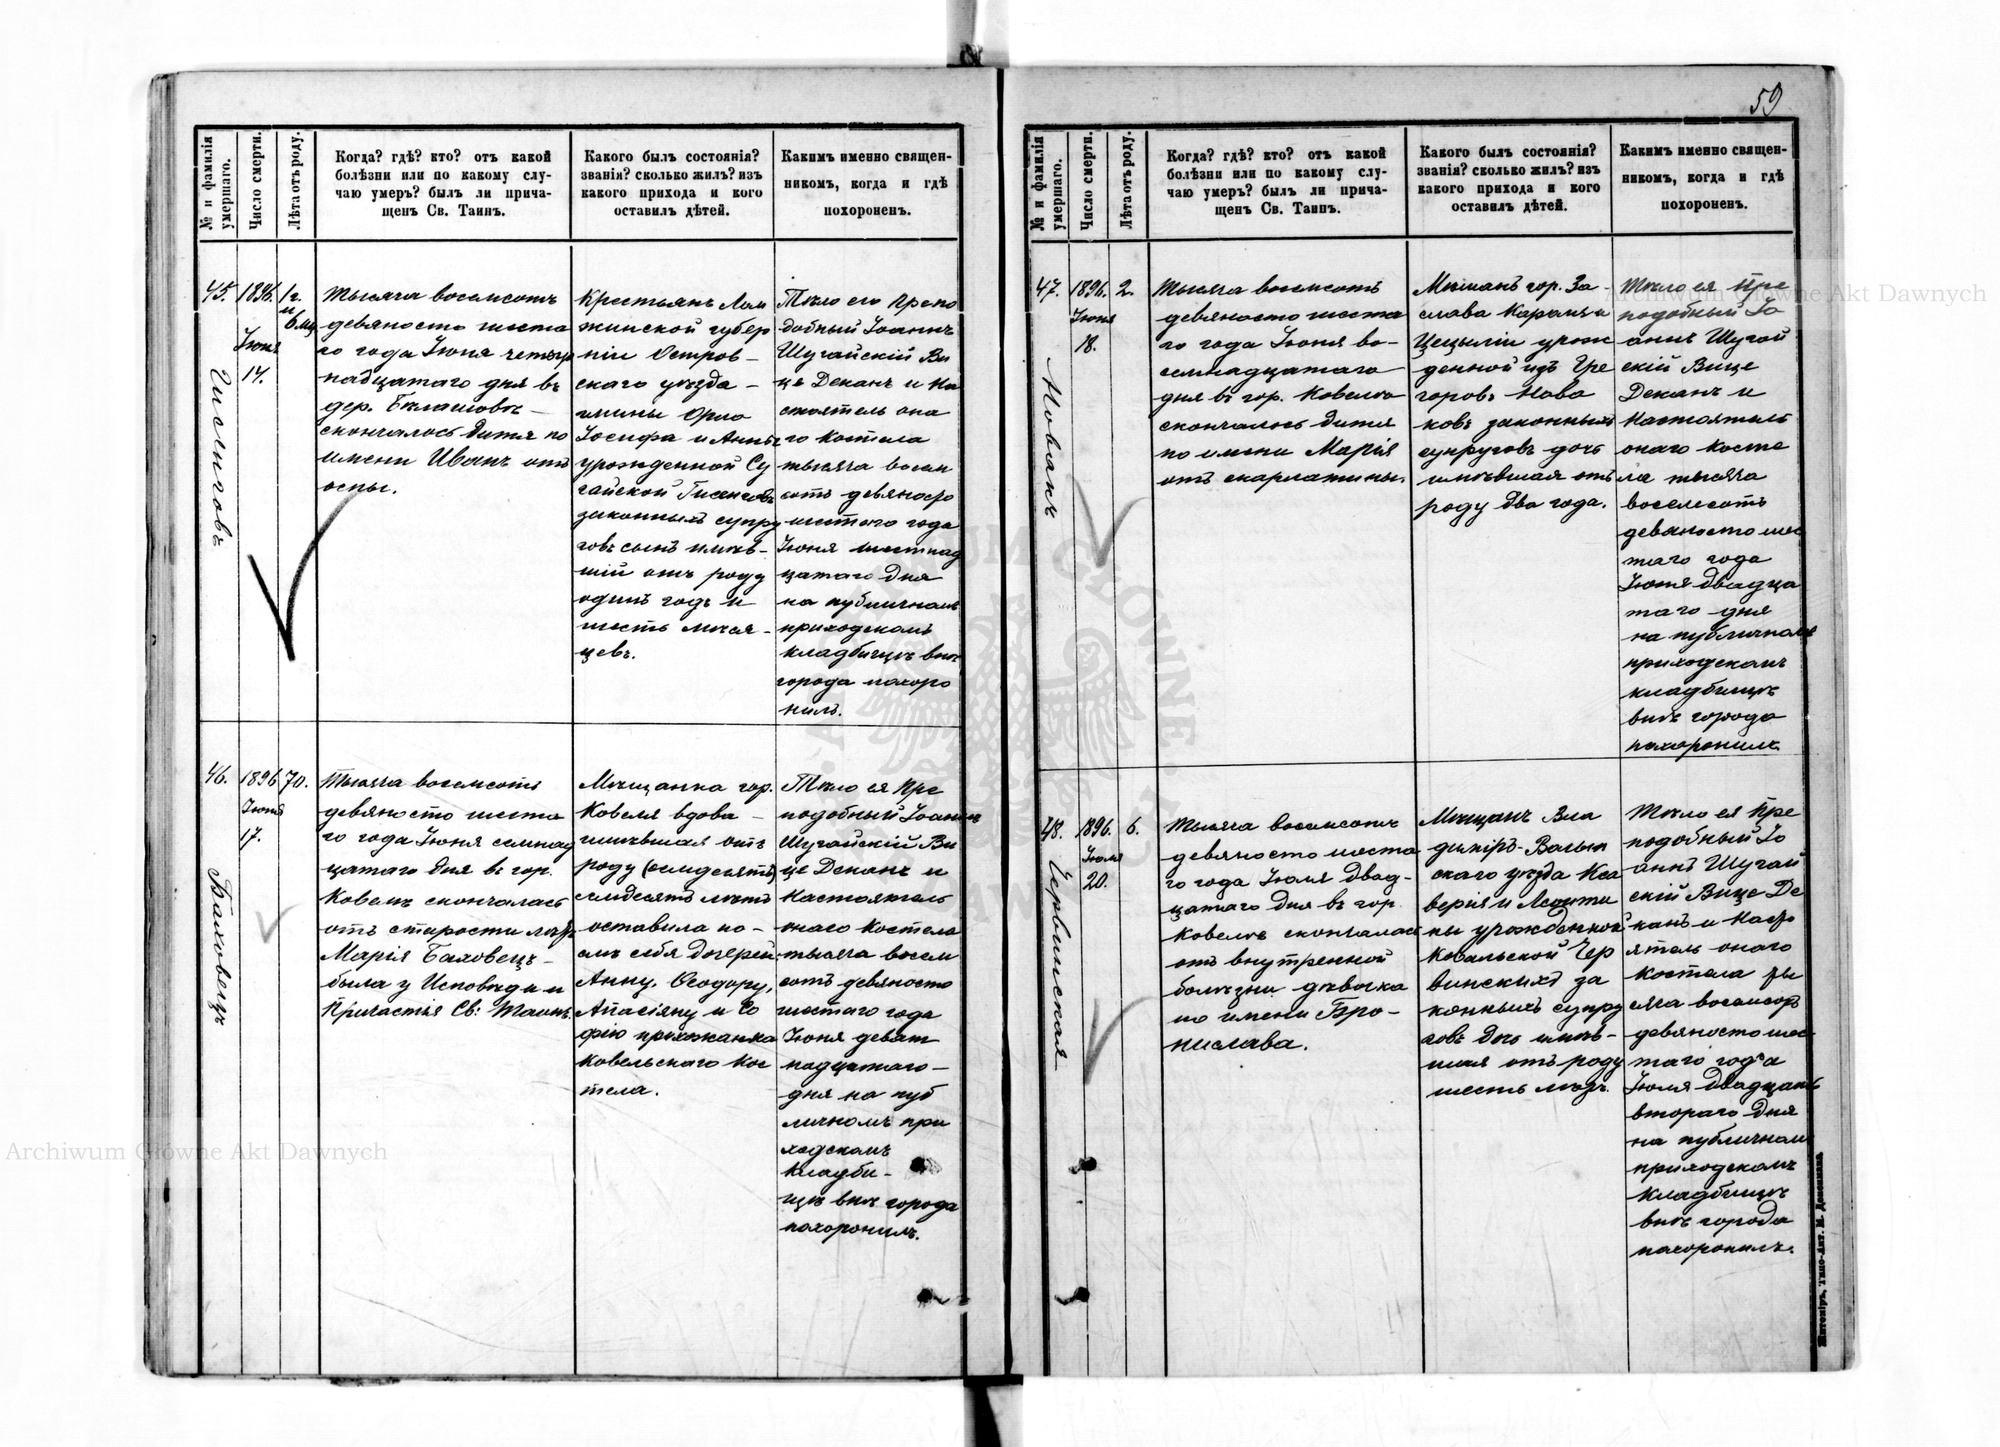 59
№ и фамилія умершаго.
Число смерти.
Лѣта отъ роду.
Когда? гдѣ? кто? отъ какой
болѣзни или по какому слу-
чаю умеръ? былъ ли прича-
щенъ Св. Таинъ.
Какого былъ состоянія?
званія? сколько жилъ? изъ
какого прихода и кого
оставилъ дѣтей.
Какимъ именно священ-
никомъ, когда и гдѣ
похороненъ.
45.
1896.
Іюня
14.
1 г.
и
6 мц.
Тысяча восемсотъ
девяносто шеста
го года Іюня четыр
надцатаго дня въ
дер.
скончалось дитя по
имени Иванъ отъ
оспы.
Крестьянъ Лом
жинской губер
ніи Остров-
скаго уѣзда -
гмины Орло
Іосифа и Анны
урожденной Су
гайской
законныхъ супру
говъ сынъ имѣв-
шій отъ роду
одинъ годъ и
шесть мѣся-
цевъ.
Тѣло его Препо
добный Іоаннъ
Шугайскій Ви
це Деканъ и На
стоятель она
го Костела
тысяча восем
сотъ девяносто
шестаго года
Іюня шестнад
цатаго дня
на публичномъ
приходскомъ
кладбищѣ внѣ
города похоро
нилъ.
46.
Баховецъ
1896
Іюня
17.
70.
Тысяча восемсотъ
девяносто шеста
го года Іюня семнад
цатаго дня въ гор.
Ковелѣ скончалась
отъ старости лѣтъ
Марія Баховецъ -
была у Исповѣди и
Причастія Св: Таинъ.
Мѣщанка гор.
Ковеля вдова -
имѣвшая отъ
роду (семдесятъ)
семдесятъ лѣтъ
оставила по-
слѣ себя дочерей:
Анну, Ѳеодору,
и Со
фію прихожанка
Ковельскаго Кос
тела.
Тѣло ея Пре
подобный Іоаннъ
Шугайскій Ви
це Деканъ и
Настоятель
онаго Костела
тысяча восем
сотъ девяносто
шестаго года
Іюня девят
надцатаго -
дня на пуб
личномъ при
ходскомъ
кладби-
щѣ внѣ города
похоронилъ.
№ и фамилія умершаго.
Число смерти.
Лѣта отъ роду.
Когда? гдѣ? кто? отъ какой
болѣзни или по какому слу-
чаю умеръ? былъ ли прича-
щенъ Св. Таинъ.
Какого былъ состоянія?
званія? сколько жилъ? изъ
какого прихода и кого
оставилъ дѣтей.
Какимъ именно священ-
никомъ, когда и гдѣ
похороненъ.
47.
Новакъ
1896.
Іюня
18.
2.
Тысяча восемсотъ
девяносто шеста
го года Іюня во-
семнадцатаго
дня въ гор. Ковелѣ
скончалось дитя
по имени Марія
отъ скарлатины.
Мѣщанъ гор. За-
слава и
Цециліи урож
денной изъ Гре
горовъ Нова
ковъ законныхъ
супруговъ дочь
имѣвшая отъ
роду два года.
Тѣло ея Пре
подобный Іо
аннъ Шугай
скій Вице
Деканъ и
Настоятель
онаго Косте
ла тысяча
восемсотъ
девяносто шес
таго года
Іюня двадца
таго дня
на публичномъ
приходскомъ
кладбищѣ
внѣ города
похоронилъ.
48.
Червинская
1896.
Іюля
20.
6.
Тысяча восемсотъ
девяносто шеста
го года Іюля двад-
цатаго дня въ гор.
Ковелѣ скончалась
отъ внутренной
болѣзни дѣвочка
по имени Бро-
нислава.
Мѣщанъ Вла
диміръ-Волын
скаго уѣзда Кса
верія и Леонти
ны урожденной
Ковальской Чер
винскихъ за
конныхъ супру
говъ дочь имѣв-
шая отъ роду
шесть лѣтъ.
Тѣло ея Пре
подобный Іо
аннъ Шугай
скій Вице Де
канъ и Насто
ятель онаго
Костела ты
сяча восемсотъ
девяносто шес
таго года
Іюля двадцать
втораго дня
на публичномъ
приходскомъ
кладбищѣ
внѣ города
похоронилъ.
Archiwum Główne Akt Dawnych
Archiwum Główne Akt Dawnych